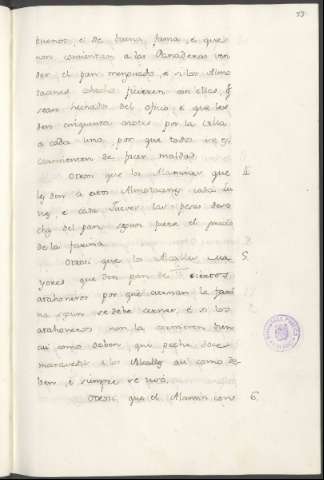 buenos e de buena fama, e que
non consientan a las Panaderas ven
der el pan menguado, e si los Almo
tacenes cohecho ficieren con ellas, q
sean hechados del oficio e que les
den cinquenta azotes por la Villa
a cada uno, por que todos
escarmienten de facer maldad.
Otrosi que los Alamines que
les den a estos Almotacenes cada lu
nes, e cada Jueves las pesas dere
chas del pan, segun fuere el precio
de la farina.
Otrosi que los Alcalles Ma 5.
yores que den pan a ciertos
atahoneros por que ciernan la fari
na segun se debe cerner, e si los
atahoneros non la cernieren bien
asi como deben, que peche doce
maravedis a los Alcalles asi como de
ben, e siempre se usó.
Otrosi, que el Alamin cons 6.